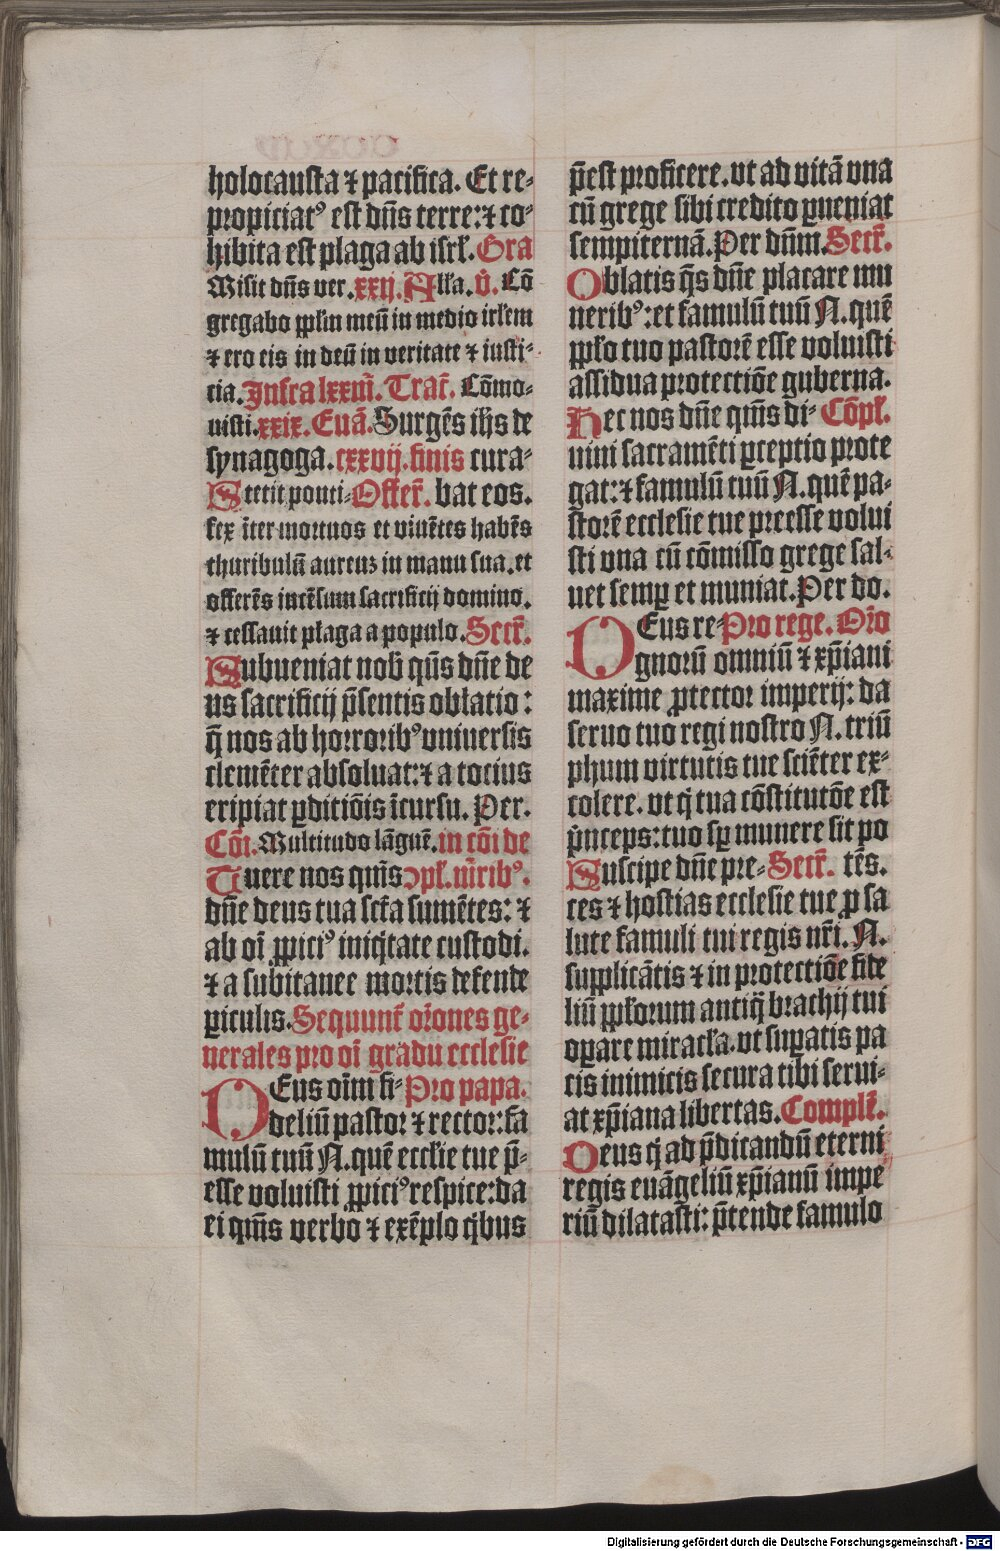 holocausta ⁊ pacifica. Et re-
propiciatꝰ est dn̄s terre: ⁊ co-
hibita est plaga ab isrł. Gra
Misit dn̄s ver. xxij. Alła. v̄. Cō
gregabo pp̄lm meū in medio irłem
⁊ ero eis in deū in veritate ⁊ iusti-
cia. Infra lxxiij. Tract̄. Cōmo-
uisti. xxix. Euā. Surgēs ih̄s de
synagoga. cxxvij. finis cura-
Stetit ponti- Offer̄. bat eos.
fex īter mortuos et viuētes habēs
thuribulū aureuꝫ in manu sua. et
offerēs incēsum sacrificij domino.
⁊ cessauit plaga a populo. Secr̄.
Subueniat nob̄ qm̄s dn̄e de
us sacrificij p̄sentis oblatio:
q̄ nos ab horroribꝰ vniuersis
clemēter absoluat: ⁊ a tocius
eripiat ꝑditiōis īcursu. Per.
Cōi. Multitudo lāguē. in cōi de
Tuere nos qm̄s ↄpł. m̄ribꝰ.
dn̄e deus tua sct̄a sumētes: ⁊
ab oī ꝓpiciꝰ iniq̄tate custodi.
⁊ a subitanee mortis defende
ꝑiculis. Sequunt̄ or̄ones ge-
nerales pro oī gradu ecclesie
DEus oīm fi- Pro papa.
deliū pastor ⁊ rector: fa
mulū tuū N. quē eccłie tue p̄-
esse voluisti ꝓpiciꝰ respice: da
ei qm̄s verbo ⁊ exēplo q̄bus
p̄est proficere. vt ad vitā vna
cū grege sibi credito ꝑueniat
sempiternā. Per dn̄m. Secr̄.
Oblatis q̄s dn̄e placare mu
neribꝰ: et famulū tuū N. quē
pp̄ło tuo pastorē esse voluisti
assidua protectiōe guberna.
Hec nos dn̄e qm̄s di- Cōpł.
uini sacramēti ꝑceptio prote
gat: ⁊ famulū tuū N. quē pa-
storē ecclesie tue preesse volui
sti vna cū cōmisso grege sal-
uet semꝑ et muniat. Per do.
DEus re- Pro rege. Or̄o
gnorū omniū ⁊ xp̄iani
maxime ꝓtector imperij: da
seruo tuo regi nostro N. triū
phum virtutis tue sciēter ex-
colere. vt q̄ tua cōstitutōe est
p̄nceps: tuo sꝑ munere sit po
Suscipe dn̄e pre- Secr̄. tēs.
ces ⁊ hostias ecclesie tue ꝓ sa
lute famuli tui regis nr̄i. N.
supplicātis ⁊ in protectiōe fide
liū pp̄łorum antiq̄ brachij tui
oꝑare miracła. vt suꝑatis pa
cis inimicis secura tibi serui-
at xp̄iana libertas. Compłē.
Deus q̄ ad p̄dicandū eterni
regis euāgeliū xp̄ianū impe
riū dilatasti: p̄tende famulo
Digitalisierung gefördert durch die Deutsche Forschungsgemeinschaft - DFG